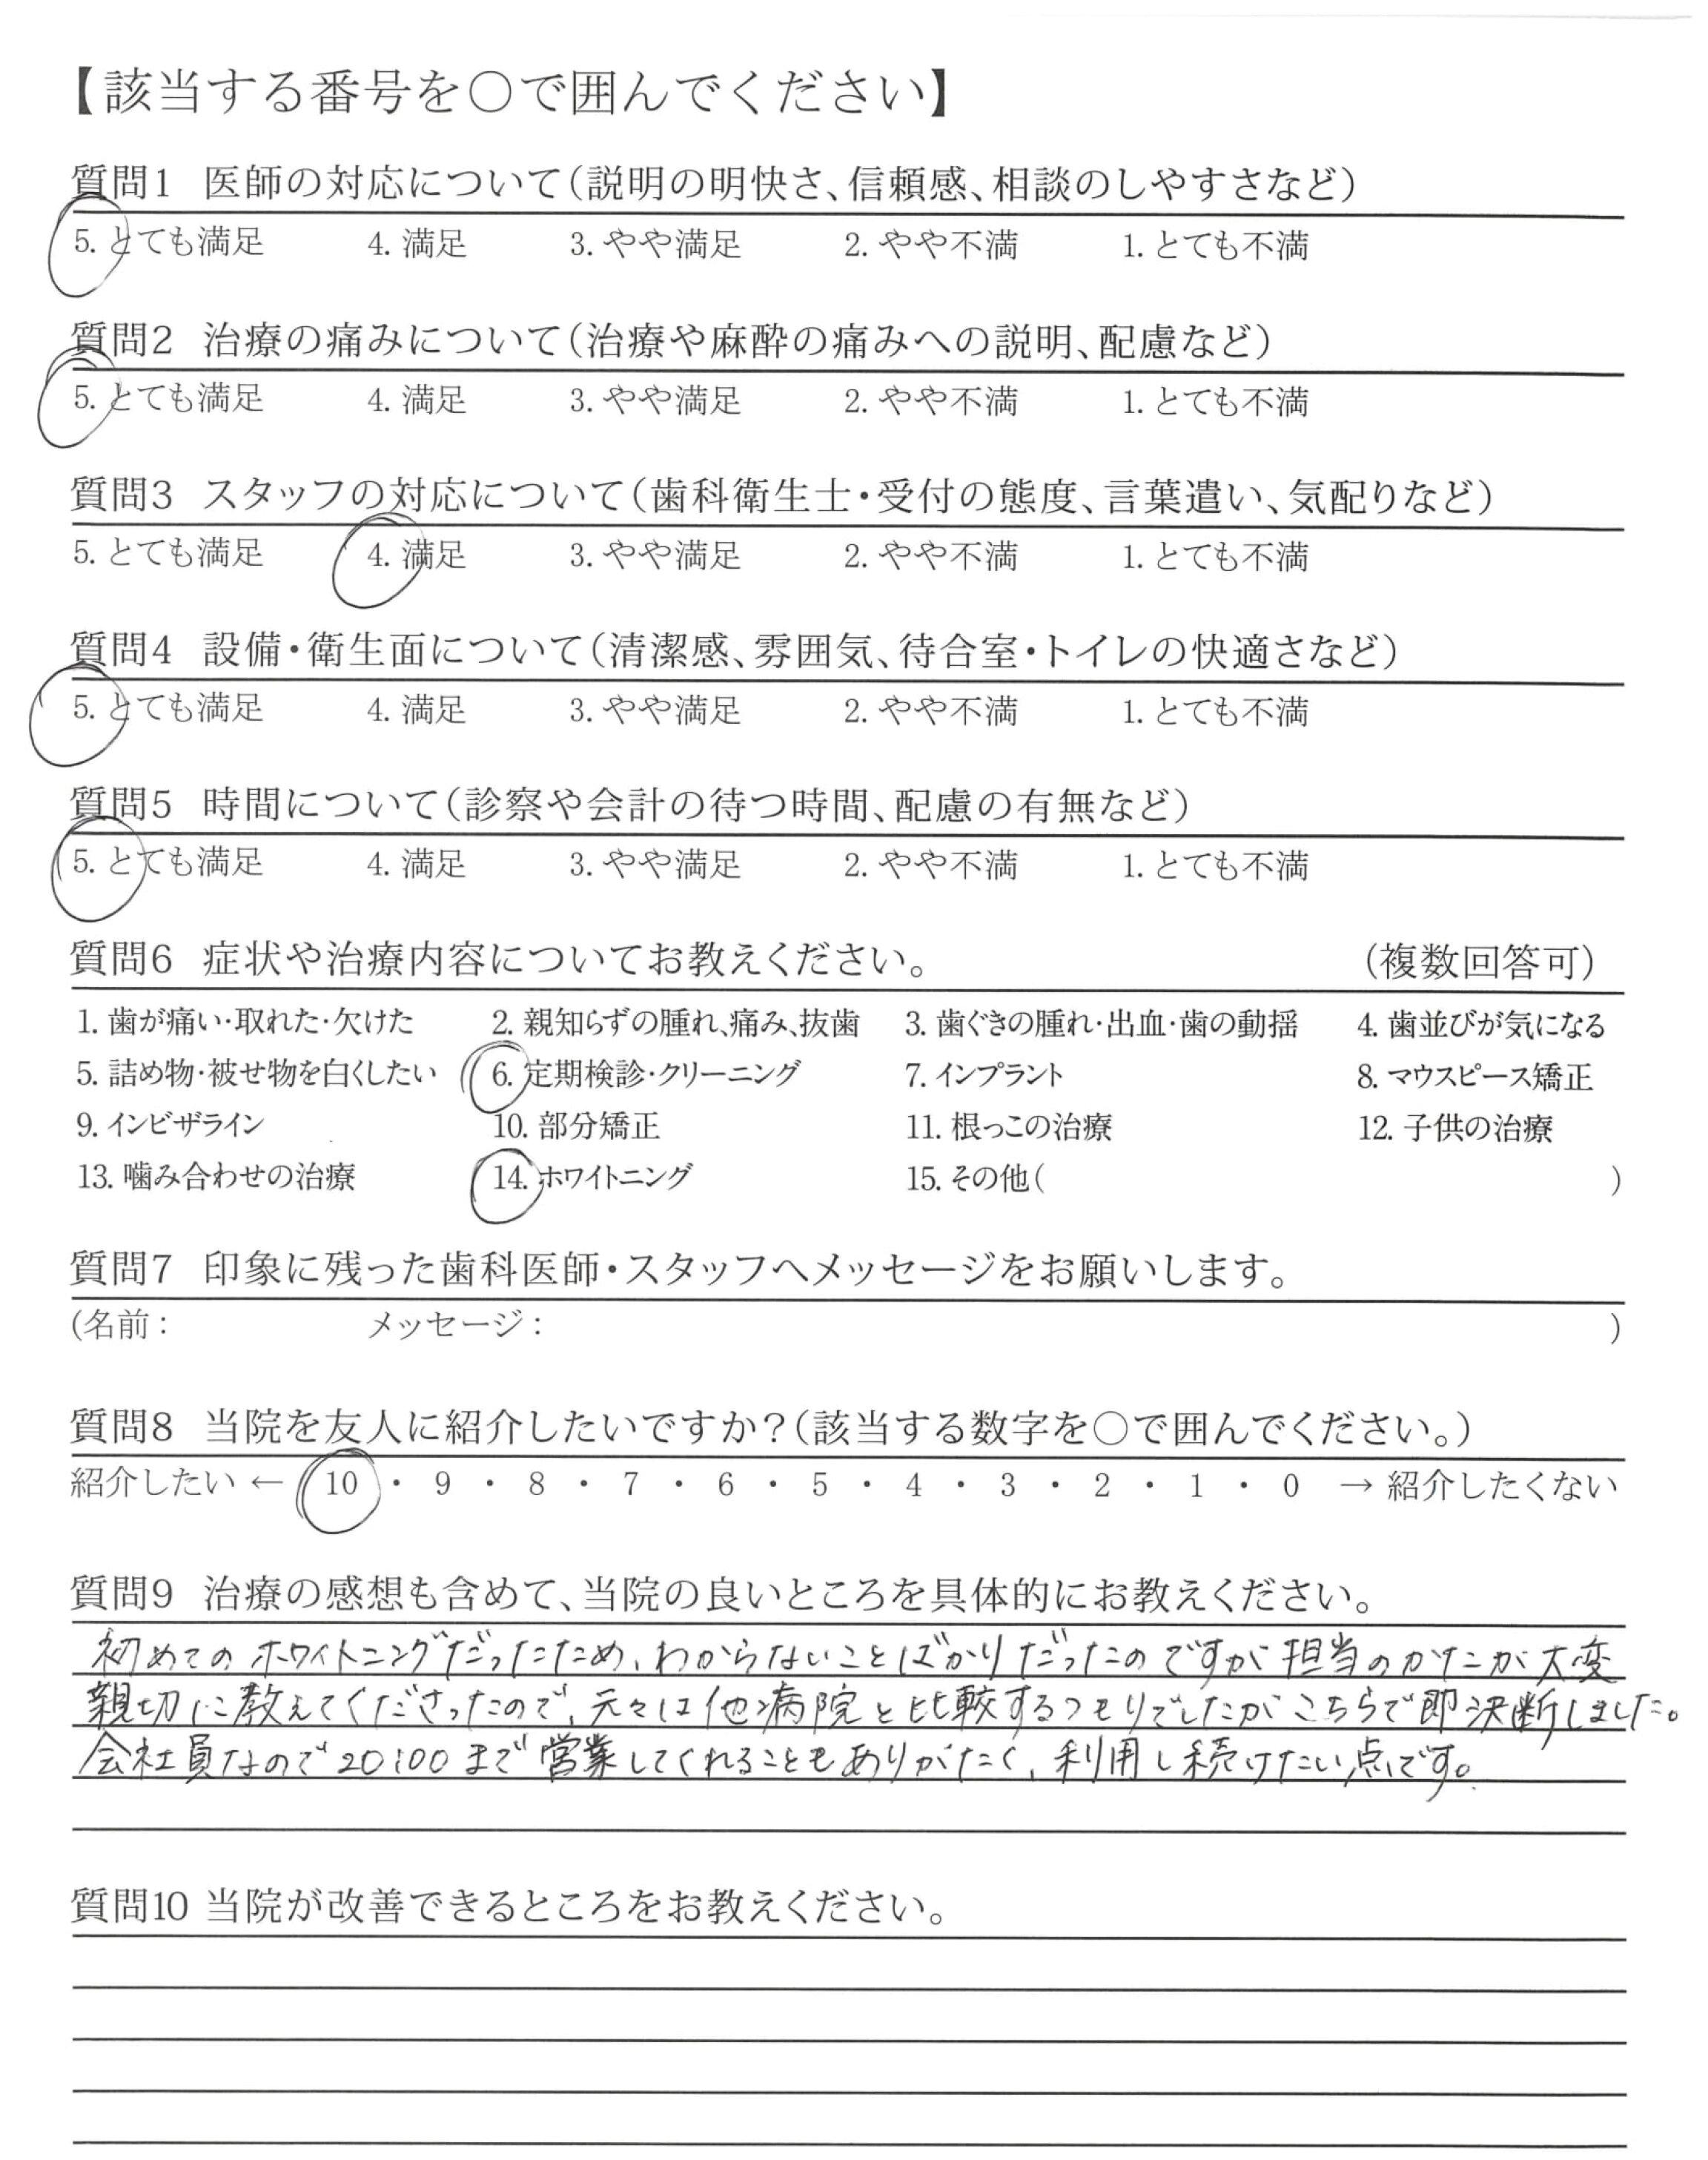 【該当する番号を○で囲んでください】
質問1 医師の対応について(説明の明快さ、信頼感、相談のしやすさなど)
5. とても満足 4. 満足 3. やや満足 2. やや不満 1. とても不満
質問2 治療の痛みについて(治療や麻酔の痛みへの説明、配慮など)
5. とても満足 4. 満足 3. やや満足 2. やや不満 1. とても不満
質問3 スタッフの対応について(歯科衛生士・受付の態度、言葉遣い、気配りなど)
5. とても満足 4. 満足 3. やや満足 2. やや不満 1. とても不満
質問4 設備・衛生面について(清潔感、雰囲気、待合室・トイレの快適さなど)
5. とても満足 4. 満足 3. やや満足 2. やや不満 1. とても不満
質問5 時間について(診察や会計の待つ時間、配慮の有無など)
5. とても満足 4. 満足 3. やや満足 2. やや不満 1. とても不満
質問6 症状や治療内容についてお教えください。 (複数回答可)
1. 歯が痛い・取れた・欠けた 2. 親知らずの腫れ、痛み、抜歯 3. 歯ぐきの腫れ・出血・歯の動揺 4. 歯並びが気になる
5. 詰め物・被せ物を白くしたい 6. 定期検診・クリーニング 7. インプラント 8. マウスピース矯正
9. インビザライン 10. 部分矯正 11. 根っこの治療 12. 子供の治療
13. 噛み合わせの治療 14. ホワイトニング 15. その他( )
質問7 印象に残った歯科医師・スタッフへメッセージをお願いします。
(名前： メッセージ： )
質問8 当院を友人に紹介したいですか？(該当する数字を○で囲んでください。)
紹介したい ← 10 ・ 9 ・ 8 ・ 7 ・ 6 ・ 5 ・ 4 ・ 3 ・ 2 ・ 1 ・ 0 → 紹介したくない
質問9 治療の感想も含めて、当院の良いところを具体的にお教えください。
初めてのホワイトニングだったため、わからないことばかりだったのですが担当のかたが大変
親切に教えてくださったので、元々は他病院と比較するつもりでしたがこちらで即決断しました。
会社員なので20:00まで営業してくれることもありがたく、利用し続けたい点です。
質問10 当院が改善できるところをお教えください。